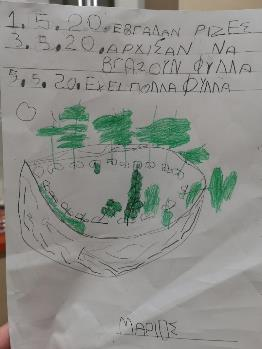 1.5.20.ΕΒΓΑΛΑΝ ΡΙΖΕΣ
3.5.20.ΑΡΧΙΣΑΝ ΝΑ
ΒΓΑΖΟΥΝ ΦΥΛΛΑ
5.5.20.ΕΧΕΙ ΠΟΛΛΑ ΦΥΛΛΑ
ΜΑΡΙΟΣ